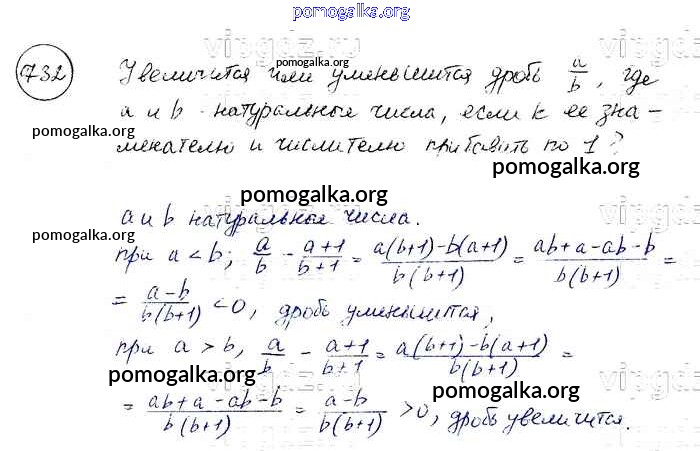 pomogalka.org
732 Увеличится или уменьшится дробь a/b, где
pomogalka.org
a и b - натуральные числа, если к ее зна-
pomogalka.org
менателю и числителю прибавить по 1?
pomogalka.org
pomogalka.org
a и b натуральные числа.
pomogalka.org
при a < b; a/b - (a+1)/(b+1) = (a(b+1)-b(a+1))/(b(b+1)) = (ab+a-ab-b)/(b(b+1)) =
= (a-b)/(b(b+1)) <0, дробь уменьшится,
при a > b, a/b - (a+1)/(b+1) = (a(b+1)-b(a+1))/(b(b+1)) =
pomogalka.org
pomogalka.org
= (ab+a-ab-b)/(b(b+1)) = (a-b)/(b(b+1)) >0, дробь увеличится.